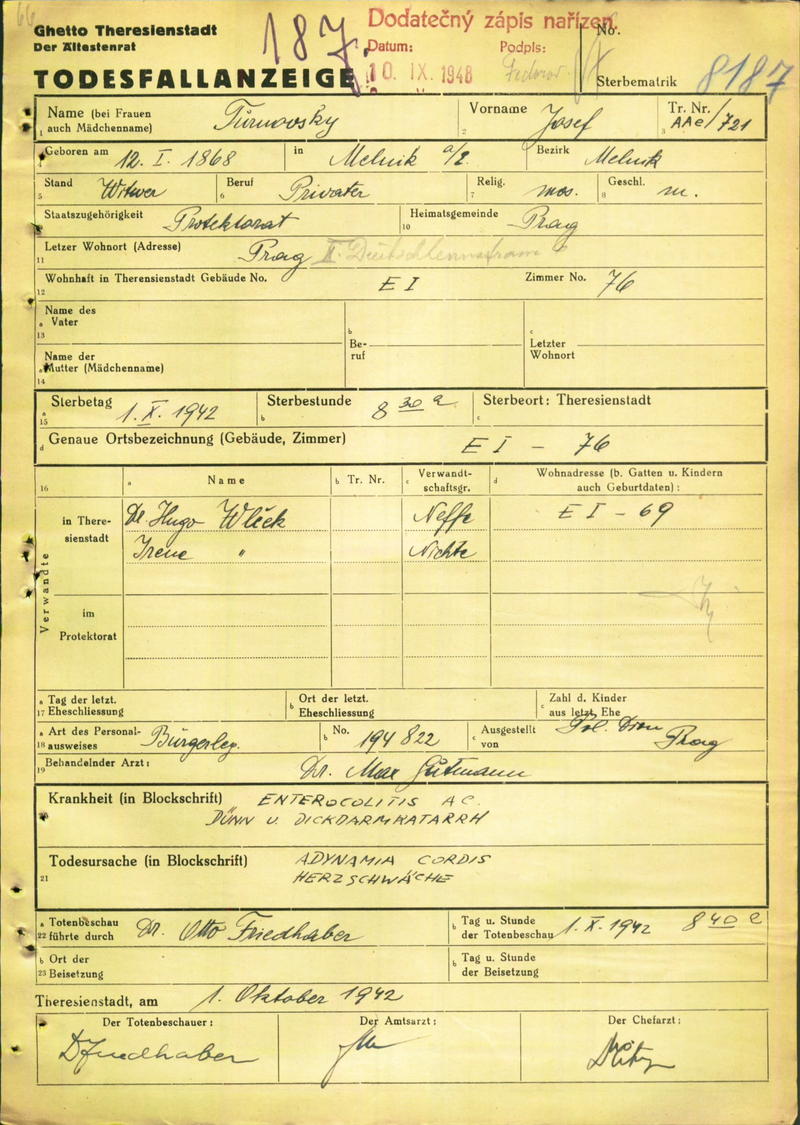 66
Ghetto Theresienstadt
Der Ältestenrat
TODESFALLANZEIGE
187.
Dodatečný zápis nařízen
Datum: Podpis:
10. IX. 1948
No.
Sterbematrik 8187
Name (bei Frauen auch Mädchenname) Turnovsky
1
Vorname Josef
2
Tr. Nr. AAe/721
3
4 Geboren am 12. I. 1868 in Melnik a/E. Bezirk Melnik
Stand Witwer Beruf Privater Relig. mos. Geschl. m.
5 6 7 8
Staatszugehörigkeit Protektorat Heimatsgemeinde Prag
9 10
Letzer Wohnort (Adresse) Prag II.
11
Wohnhaft in Therensienstadt Gebäude No. E I Zimmer No. 76
12
Name des
a Vater
13
b Beruf
c Letzter Wohnort
Name der
a Mutter (Mädchenname)
14
a Sterbetag 1. X. 1942 Sterbestunde 8 30 a Sterbeort: Theresienstadt
15 b c
d Genaue Ortsbezeichnung (Gebäude, Zimmer) E I - 76
16 a Name b Tr. Nr. c Verwandt-schaftsgr. d Wohnadresse (b. Gatten u. Kindern auch Geburtdaten) :
Verwandte
in There-sienstadt
Dr. Hugo Wleck Neffe E I - 69
Irene " Nichte
im Protektorat
a Tag der letzt.
17 Eheschliessung
b Ort der letzt.
Eheschliessung
c Zahl d. Kinder
aus letzt. Ehe
a Art des Personal-
18 ausweises Bürgerleg.
b No. 194 822
c Ausgestellt von Pol. Dion Prag
19 Behandelnder Arzt: Dr. Max Gutmann
Krankheit (in Blockschrift) ENTEROCOLITIS AC.
20 DÜNN U. DICKDARMKATARRH
Todesursache (in Blockschrift) ADYNAMIA CORDIS
21 HERZSCHWÄCHE
a Totenbeschau
22 führte durch Dr. Otto Friedhaber
b Tag u. Stunde
der Totenbeschau 1. X. 1942 8 40 a
b Ort der
23 Beisetzung
b Tag u. Stunde
der Beisetzung
Theresienstadt, am 1. Oktober 1942
Der Totenbeschauer : Der Amtsarzt : Der Chefarzt :
DFriedhaber